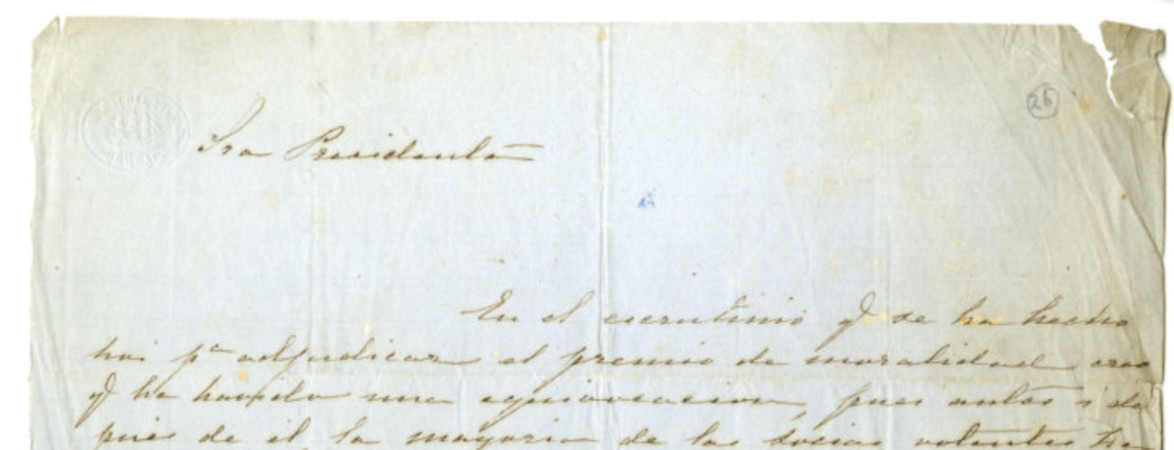 26
Sra Presidenta
En el escrutinio q se ha hecho
hoi pa adjudicar el premio de moralidad creo
q ha havido una equivocacion, pues antes i des
pues de el la mayoria de las socias votantes